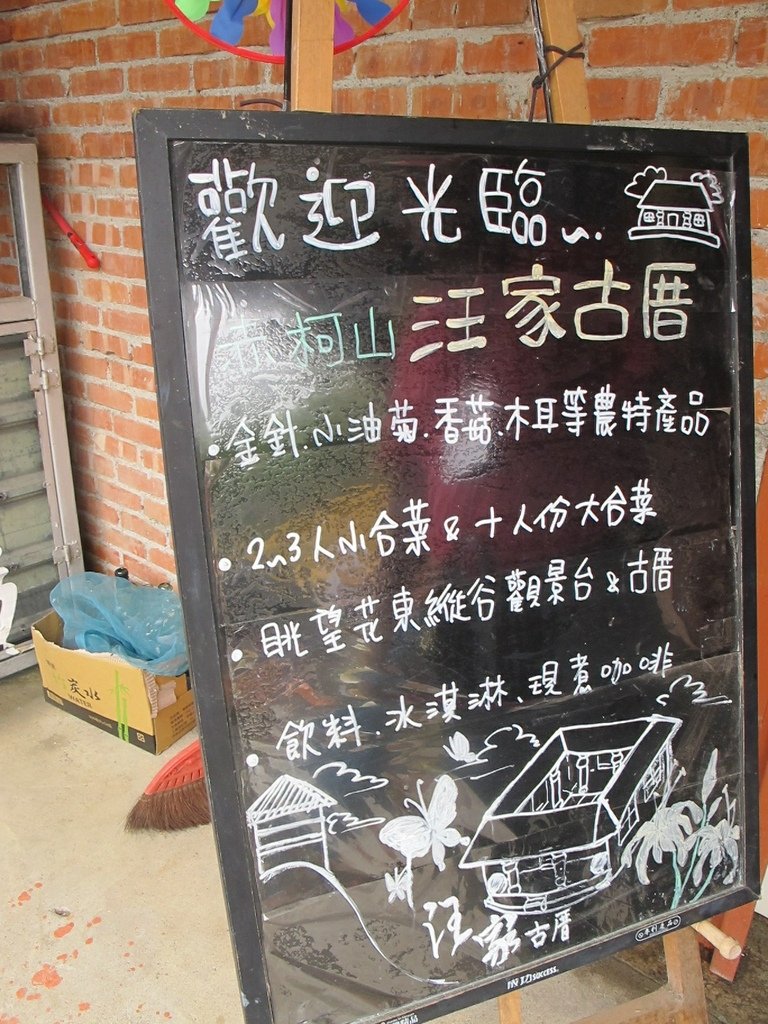 歡迎光臨~.
赤柯山 汪家古厝
•金針.小油菊.香菇.木耳等農特產品
•2~3人小合菜&十人份大合菜
•眺望花東縱谷觀景台&古厝
•飲料.冰淇淋、現煮咖啡
汪家古厝
成功 SUCCESS.
專利產品
炭水
WATER